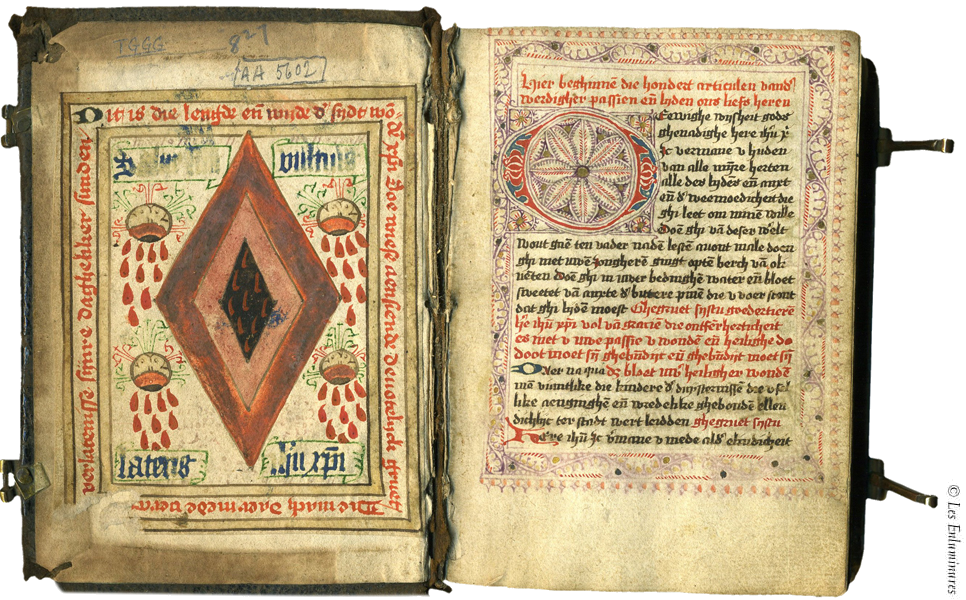 TGGG
827
AA 5602
Dit is die lengde eñ wijde d' sydt wō
d' xp̄i Soe wiese aensiende devotelijck gruett
Die mach daer mede
verlatenisse sijnre dagheliker sunden
vulnus
lateris
Jhū xp̄i
Hier beghinnē die hondert articulen vand'
werdigher passien eñ lyden ons liefs heren
O Ewighe wijsheit gods
ghenadighe here ihū x̄
c̄ vermane v huden
van alle mijre herten
alle des lydēs eñ anxt
eñ d' weemoedicheit die
ghi leet om minē wille
Doen ghi vā deser welt
wout gaē ten vader nadē lestē auont male doen
ghi met uwē iongherē gingt optē berch vā oli
ueten Doen ghi in uwer bedinghē water eñ bloet
sweetet vā anxte d' bittere pinē die v voer stont
dat ghi lydē moest Ghegruet sijstu goedertierē
h'e ihū xp̄i vol vā graciē die ontfer herticheit
es met v uwe passie v wondē eñ heilighe do
doot moet sijn ghebñdijt eñ ghebñdijt moet sijn
water na qua dz bloet uwer heiligher wondē
wā viantlike die kindere d' duysternissē die v sel
like aenginghē eñ wredelike ghebondē ellen
dichlijc ter stadt wert leidden ghegruet sijstu
Here ihū c̄ v'mane v mede als' elindicheit
© Les Enluminures